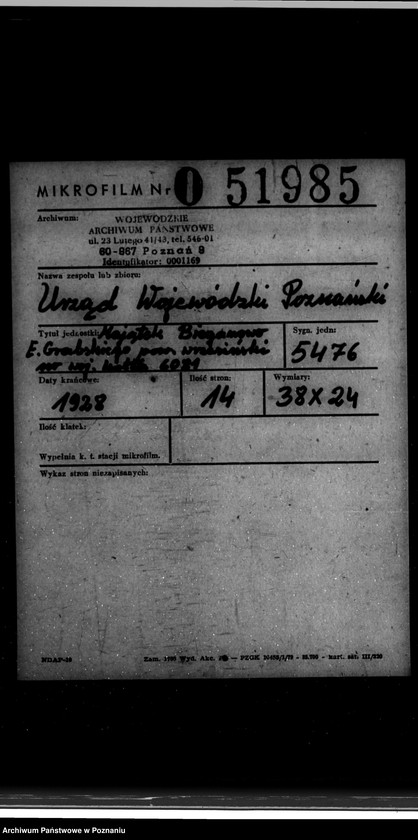 MIKROFILM Nr O 51985
Archiwum: WOJEWÓDZKIE
ARCHIWUM PAŃSTWOWE
ul. 23 Lutego 41/43, tel. 546-01
60-967 Poznań 9
Identyfikator: 0001169
Nazwa zespołu lub zbioru:
Urząd Wojewódzki Poznański
Tytuł jednostki: Majątek Bieganowo
E. Grabskiego pow. wrzesiński
nr woj. 6081
Sygn. jedn:
5476
Daty krańcowe:
1928
Ilość stron:
14
Wymiary:
38 X 24
Ilość klatek:
Wypełnia k. t. stacji mikrofilm.
Wykaz stron niezapisanych:
NDAP-16
Zam. Wyd. Akc. — PZGK
Archiwum Państwowe w Poznaniu